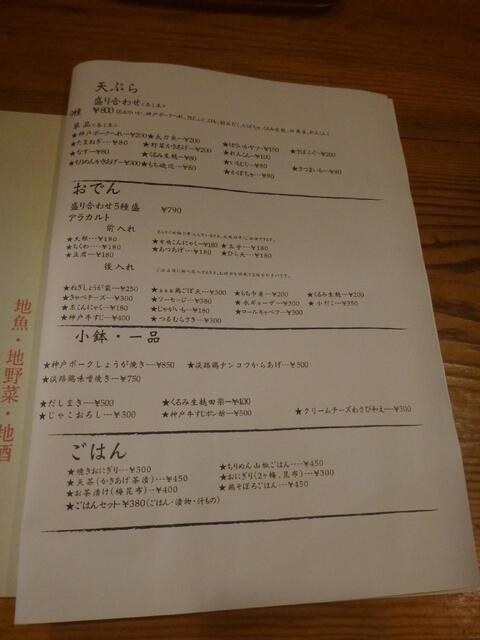 天ぷら
盛り合わせ
種 ¥800
単品
★神戸ポークヘレ…¥200 ★太刀魚…¥200
★たまねぎ…¥80 ★野菜かきあげ…¥200 ★ほうれん ¥150 ¥200
★なす…¥80 ★くるみ生麩…¥80 ★れんこん…¥100 ★さつまいも…¥80
★ちりめんかきあげ…¥300 ★もち…¥80 ¥80
★かぼちゃ…¥80
おでん
盛り合わせ5種盛 ¥790
アラカルト
前入れ
★大根…¥180 こんにゃく…¥180 ★玉子…¥180
★ちくわ…¥180 ★あつあげ…¥180 ★ひら天…¥180
★豆腐…¥180
後入れ
★ねぎしょうが袋…¥250 鶏ごぼ天…¥300 ★もち巾着…¥200 ★くるみ生麩…¥200
★きゃべチーズ…¥300 ★ソーセージ…¥380 ★水ギョーザ…¥300 ★小だこ…¥350
★糸こんにゃく…¥180 ★じゃがいも…¥180 ★ロールキャベツ…¥300
★神戸牛すじ…¥400 ★つるむらさき…¥300
小鉢・一品
★神戸ポークしょうが焼き…¥850 ★淡路鶏ナンコツからあげ…¥500
★淡路鶏味噌焼き…¥750
★だしまき…¥500 ★くるみ生麩田楽…¥400
★じゃこおろし…¥300 ★神戸牛すじポン酢…¥500 ★クリームチーズわさび和え…¥300
ごはん
★焼きおにぎり…¥300 ★ちりめん山椒ごはん…¥450
★天茶(かきあげ茶漬)…¥450 ★おにぎり(2ヶ梅、昆布)…¥300
★お茶漬け(梅昆布)…¥400 ★鶏そぼろごはん…¥450
★ごはんセット¥380(ごはん・漬物・汁もの)
地魚・地野菜・地酒